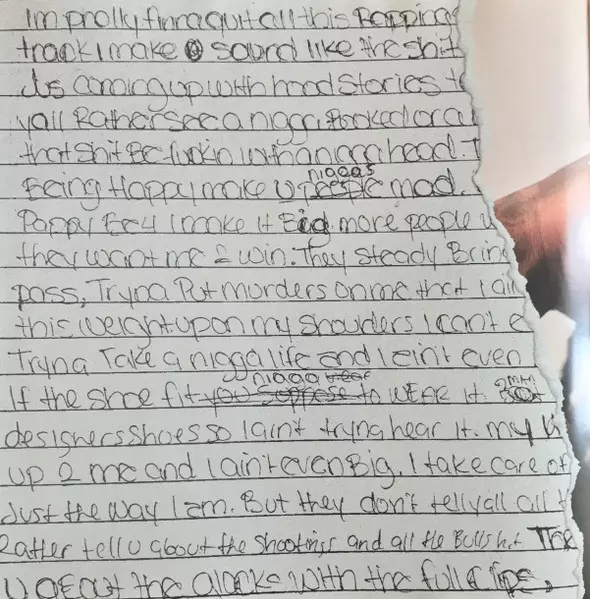 Im prolly finna quit all this Rapping
track I make sound like the shit
Is coming up with hood stories t
yall Rather see a nigga Booked or a
that shit Be fuckin with a nigga head. T
Being Happy make niggas mad.
Poppy Be4 I make it Big. more people
they want me 2 win. They steady Brin
pass, Tryna Put murders on me that I ain
this weight up on my shoulders I can't e
Tryna Take a nigga life and I ain't even
If the shoe fit nigga WEAR it.
designers shoes so I ain't tryna hear it. my
up 2 me and I ain't even Big. I take care of
Just the way I am. But they don't tell yall all t
Ratter tell u about the shootings and all the Bullshit. The
the with the full clips,